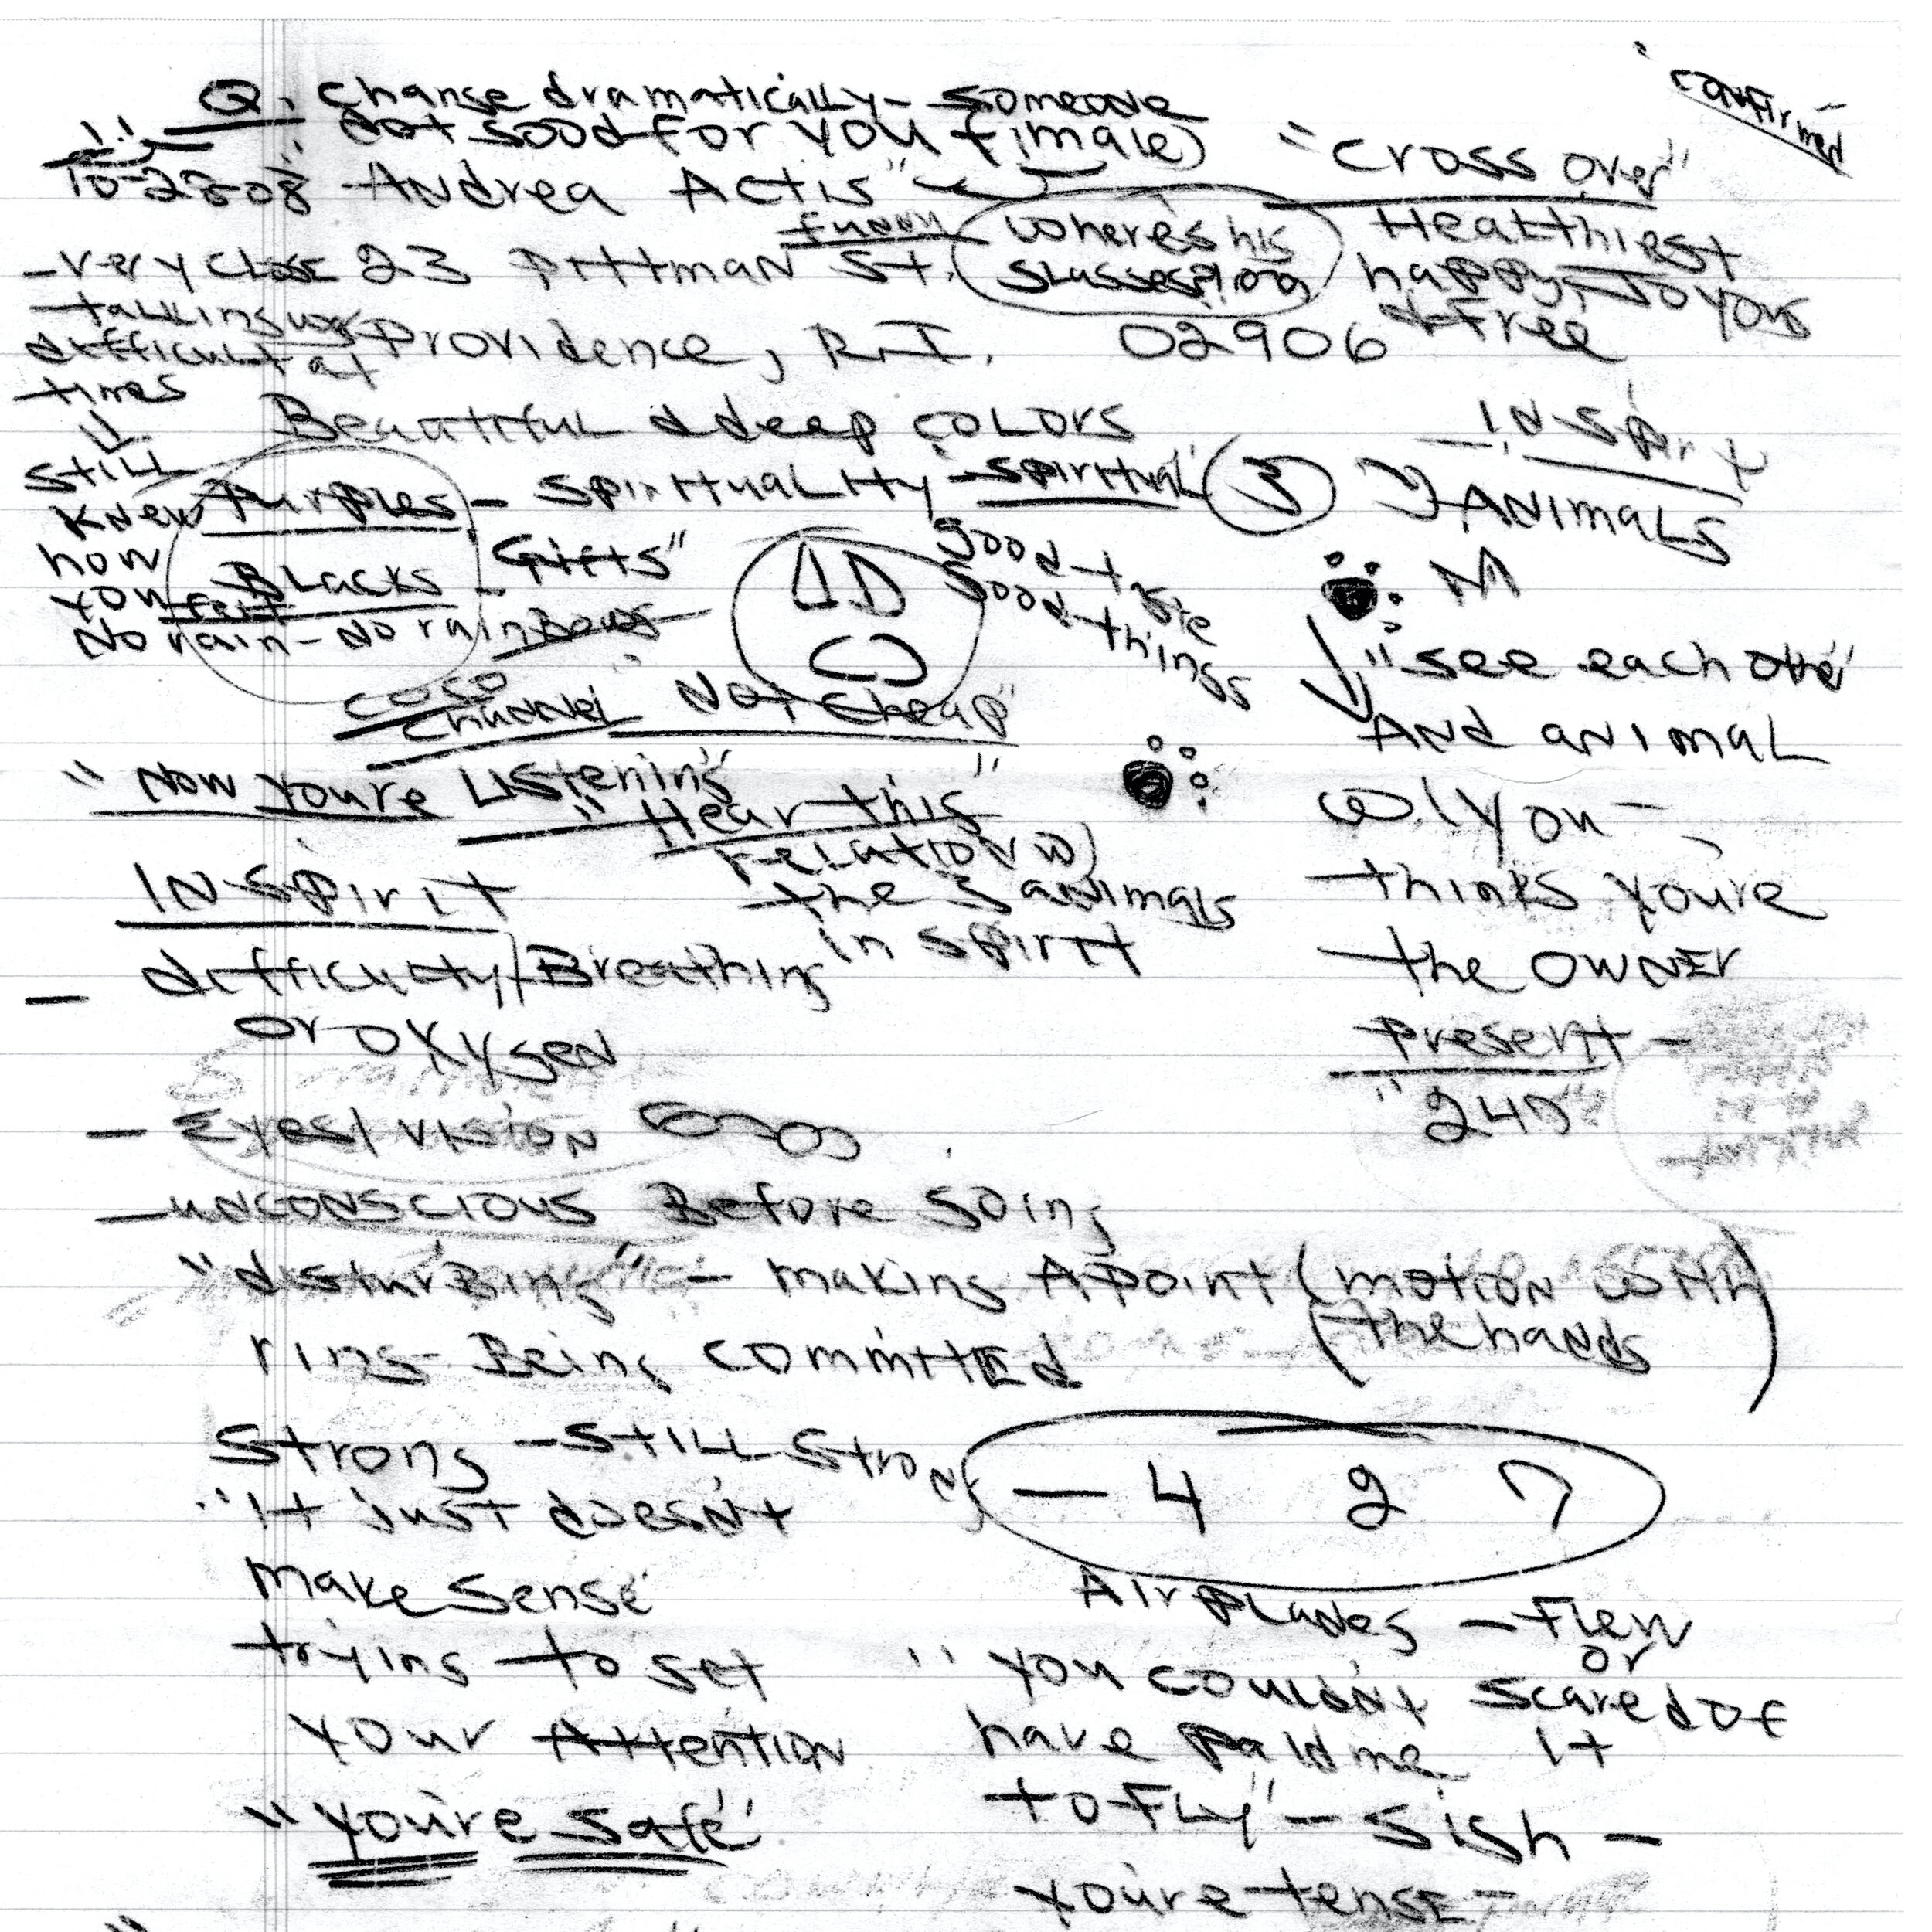 Q. Change dramatically - someone
not good for you (female)
10-28-08 Andrea Actis"
confirmed
"cross over"
Healthiest
happy, Joyous
& Free
funny
where's his
glasses
- very close 23 Pittman St.
talking was
difficult at
times
Providence, R.I. 02906
still
knew
how
you felt
Beautiful & deep colors
Purples - Spirituality - spiritual
Blacks - Gifts"
No rain - No rainbows
good taste
good things
coco
channel Not cheap"
IN Spirit
3 ANIMALS
M
"see each other
And animal
w/you -
thinks you're
the OWNER
present -
"24/7"
" Now You're Listening"
" Hear this"
relation w/
the 3 animals
in spirit
IN Spirit
- difficulty/Breathing
or oxygen
- Eyes/vision
- unconscious Before going
"disturbing" - making A point (motion with
the hands)
ring - Being committed
Strong - STILL strong
"it just doesn't
make sense
trying to get
your Attention
"you're safe"
- 4 2 7
Airplanes - Flew
or
scared of
it
"you couldn't
have paid me
to FLY" - sigh -
you're tense -